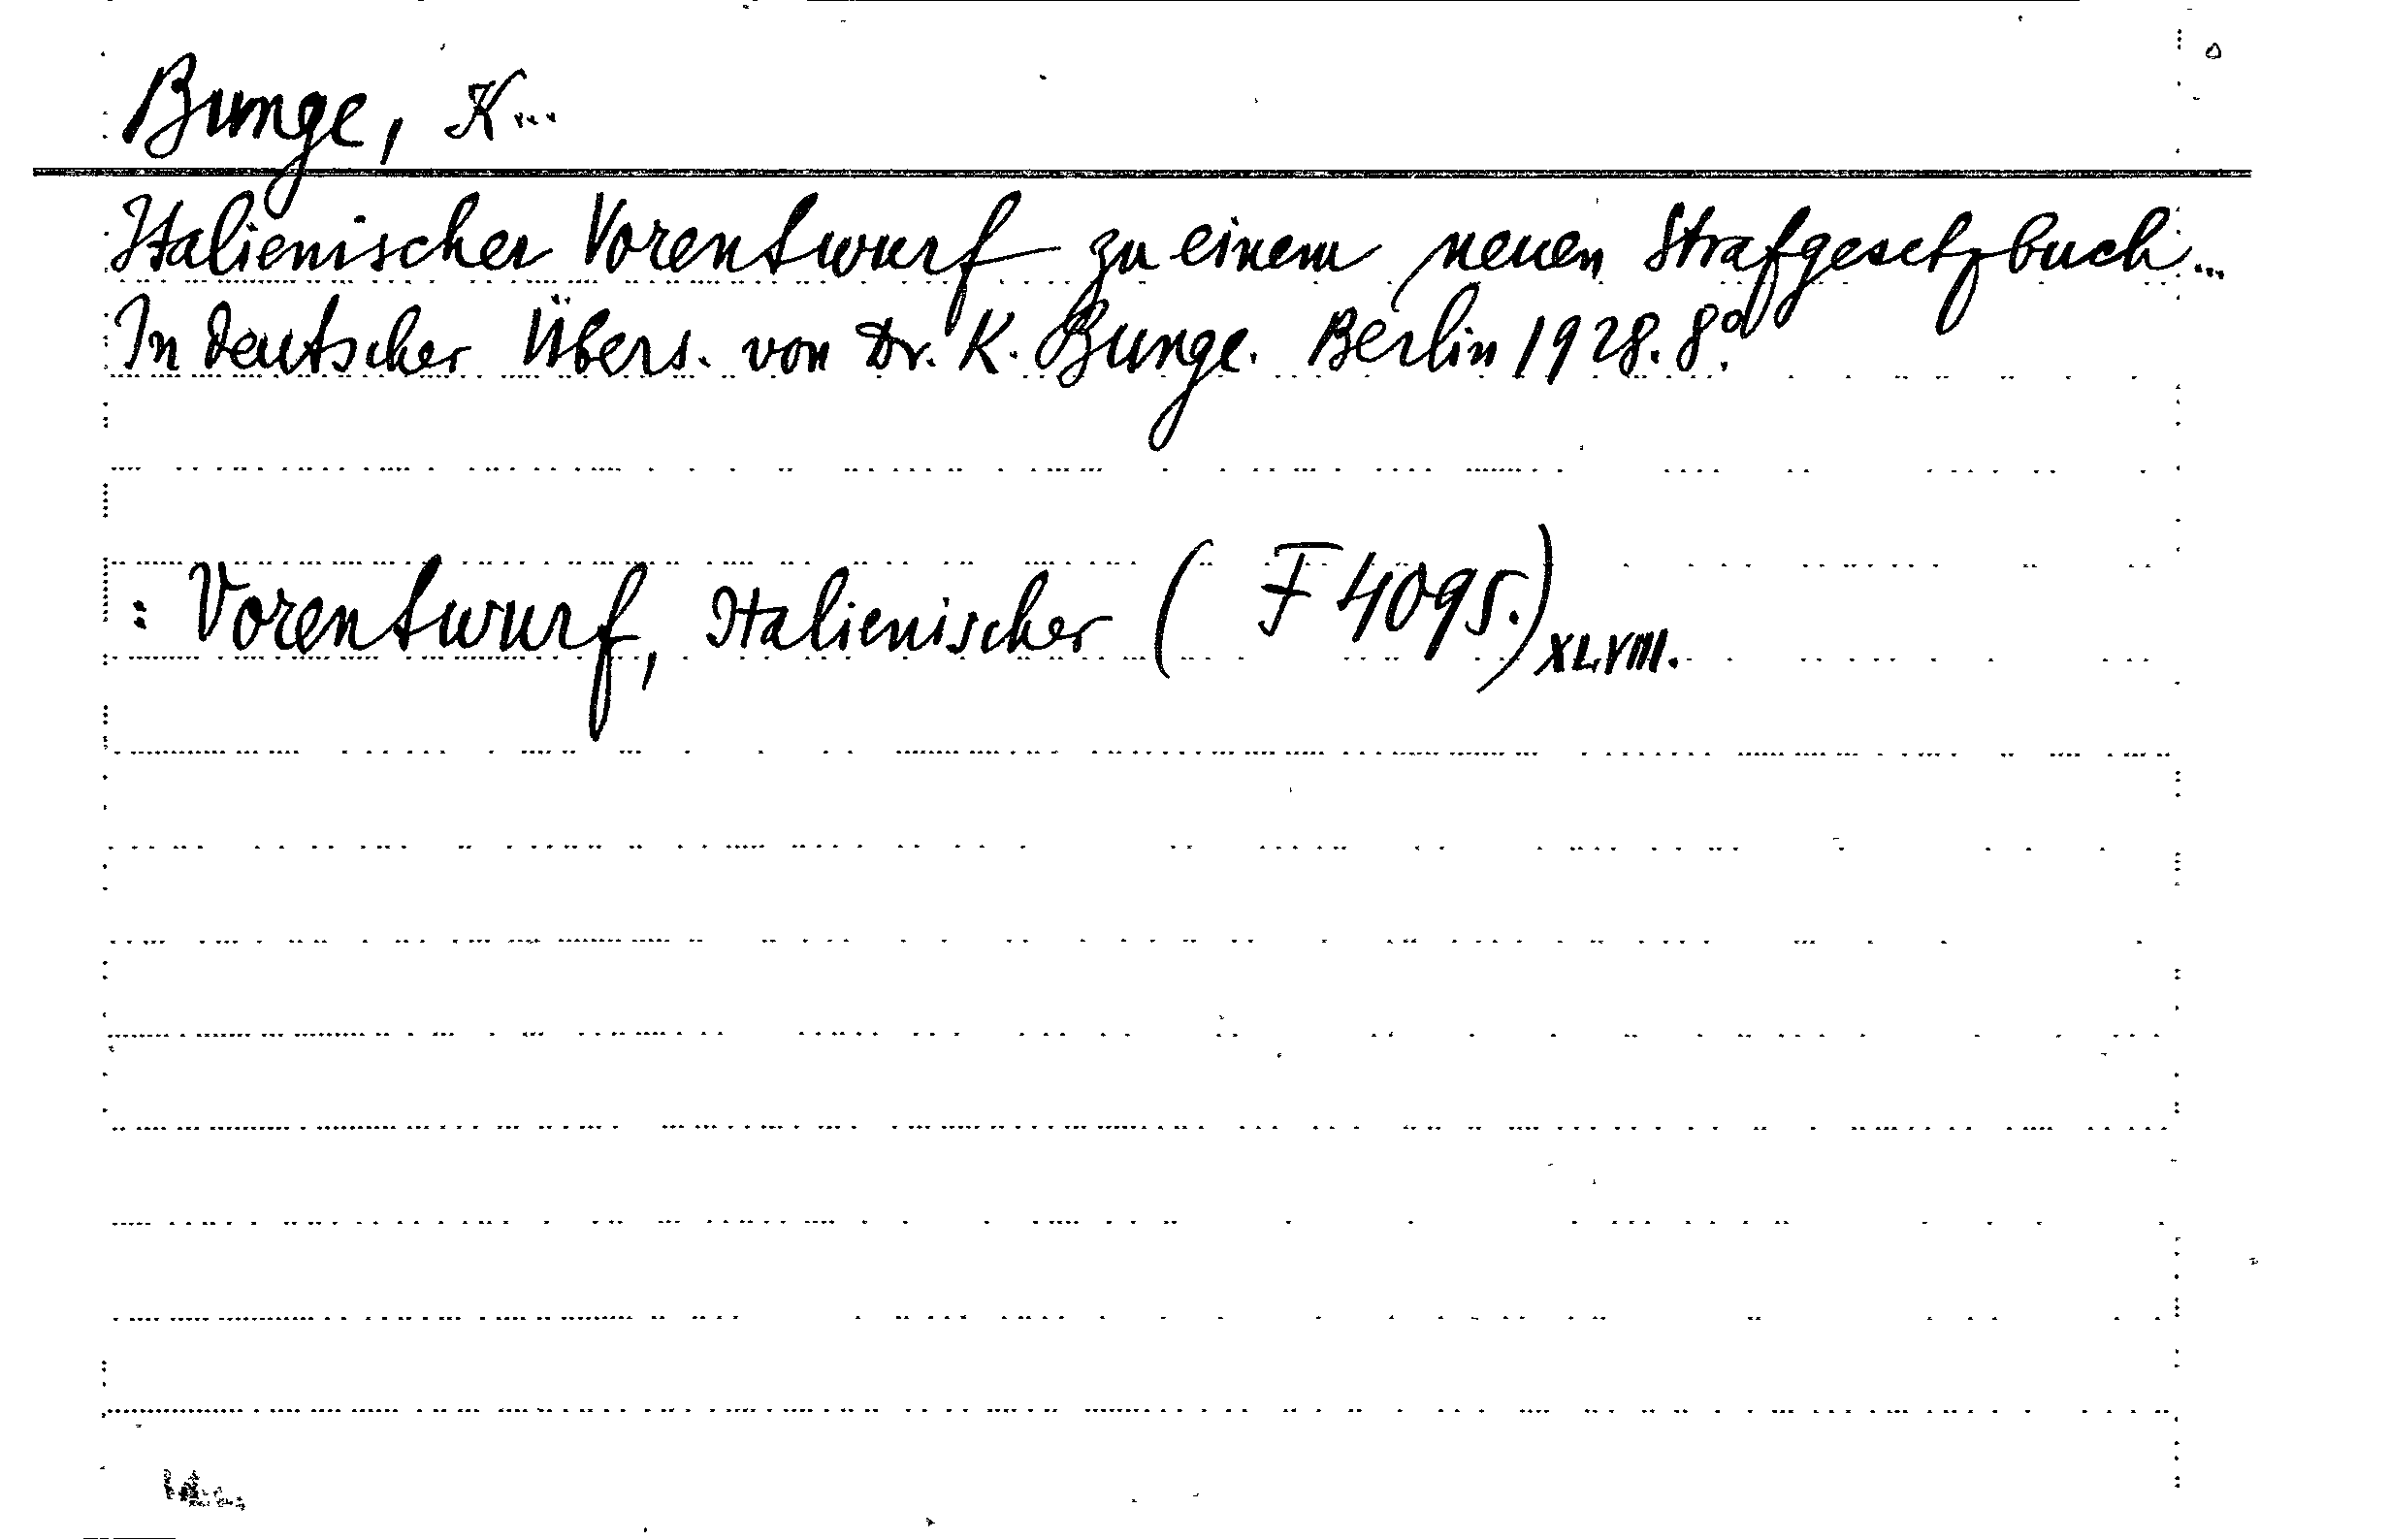 Bunge, K...
Italienischer Vorentwurf zu einem neuen Strafgesetzbuch...
In deutscher Übers. von Dr. K. Bunge. Berlin 1928. 8°.
: Vorentwurf, Italienischer ( F 4095.) XLVIII.